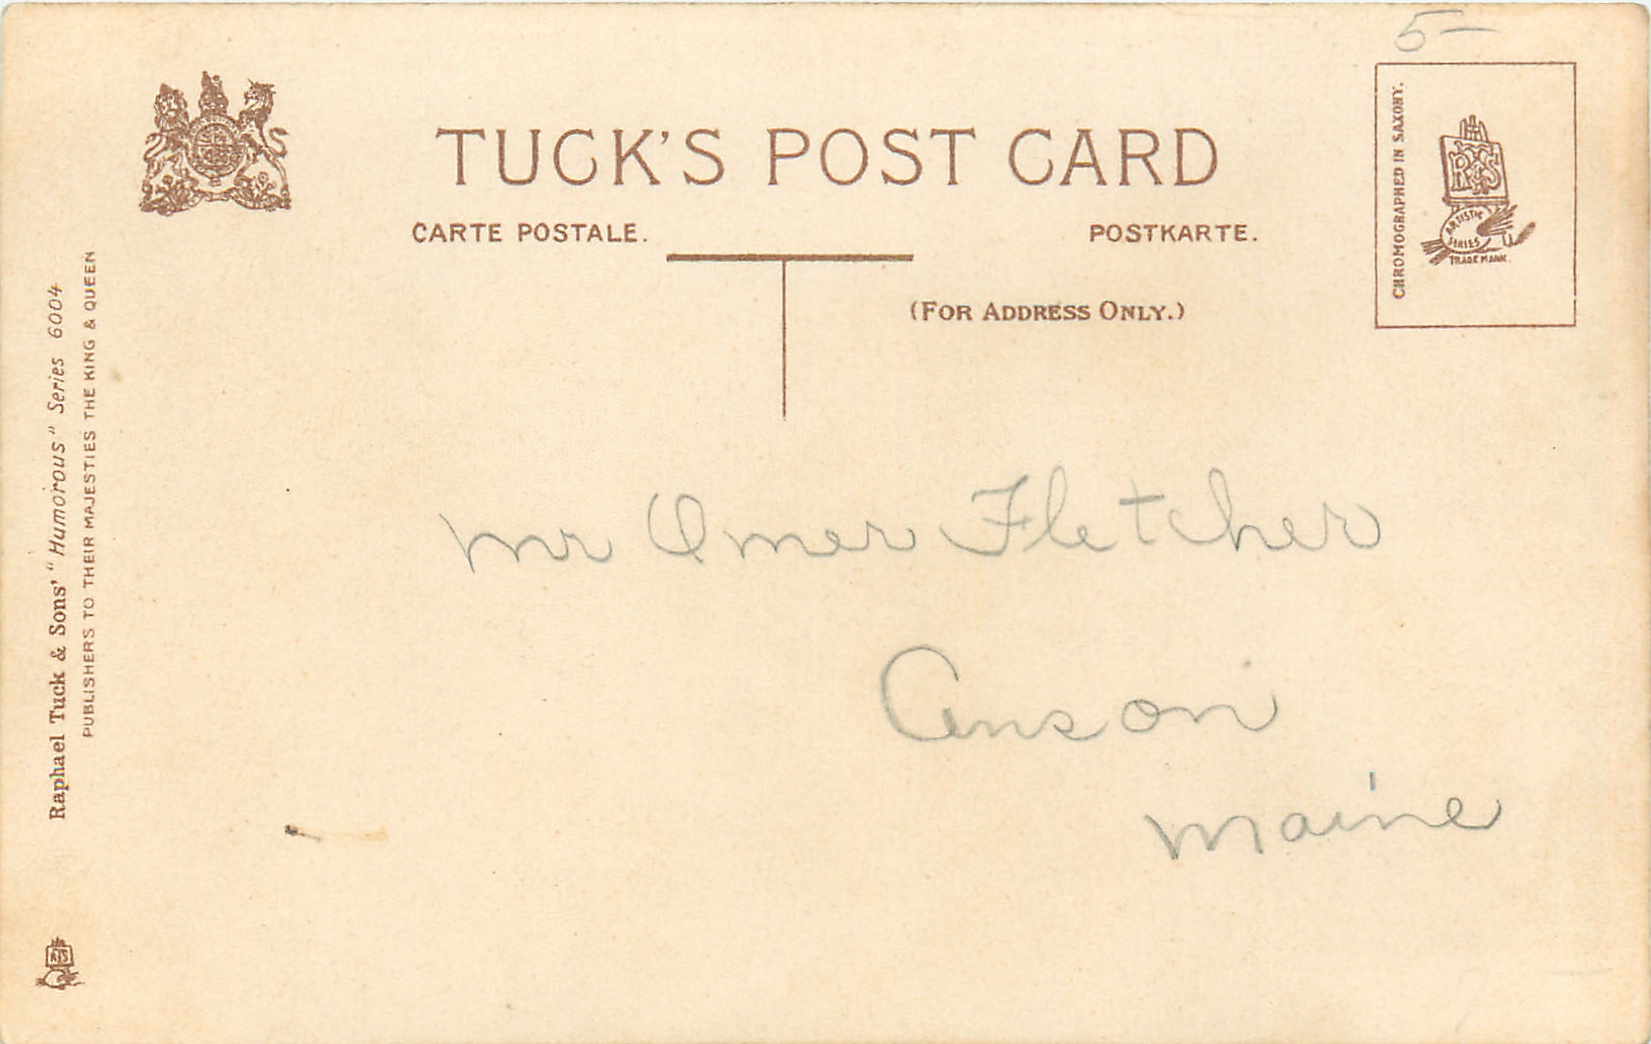 5-
TUCK'S POST CARD
CARTE POSTALE.
POSTKARTE.
(FOR ADDRESS ONLY.)
CHROMOGRAPHED IN SAXONY.
RTS
ARTISTIC
SERIES
TRADE MARK.
Mr Omer Fletcher
Anson
Maine
Raphael Tuck & Sons' "Humorous" Series 6004
PUBLISHERS TO THEIR MAJESTIES THE KING & QUEEN
RTS